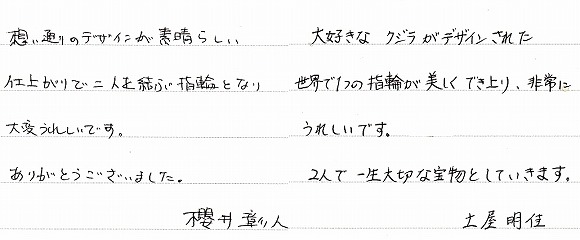 想い通りのデザインが素晴らしい
仕上がりで二人を結ぶ指輪となり
大変うれしいです。
ありがとうございました。
櫻井
大好きな クジラがデザインされた
世界で1つの指輪が美しくでき上り、非常に
うれしいです。
2人で一生大切な宝物としていきます。
土屋明佳